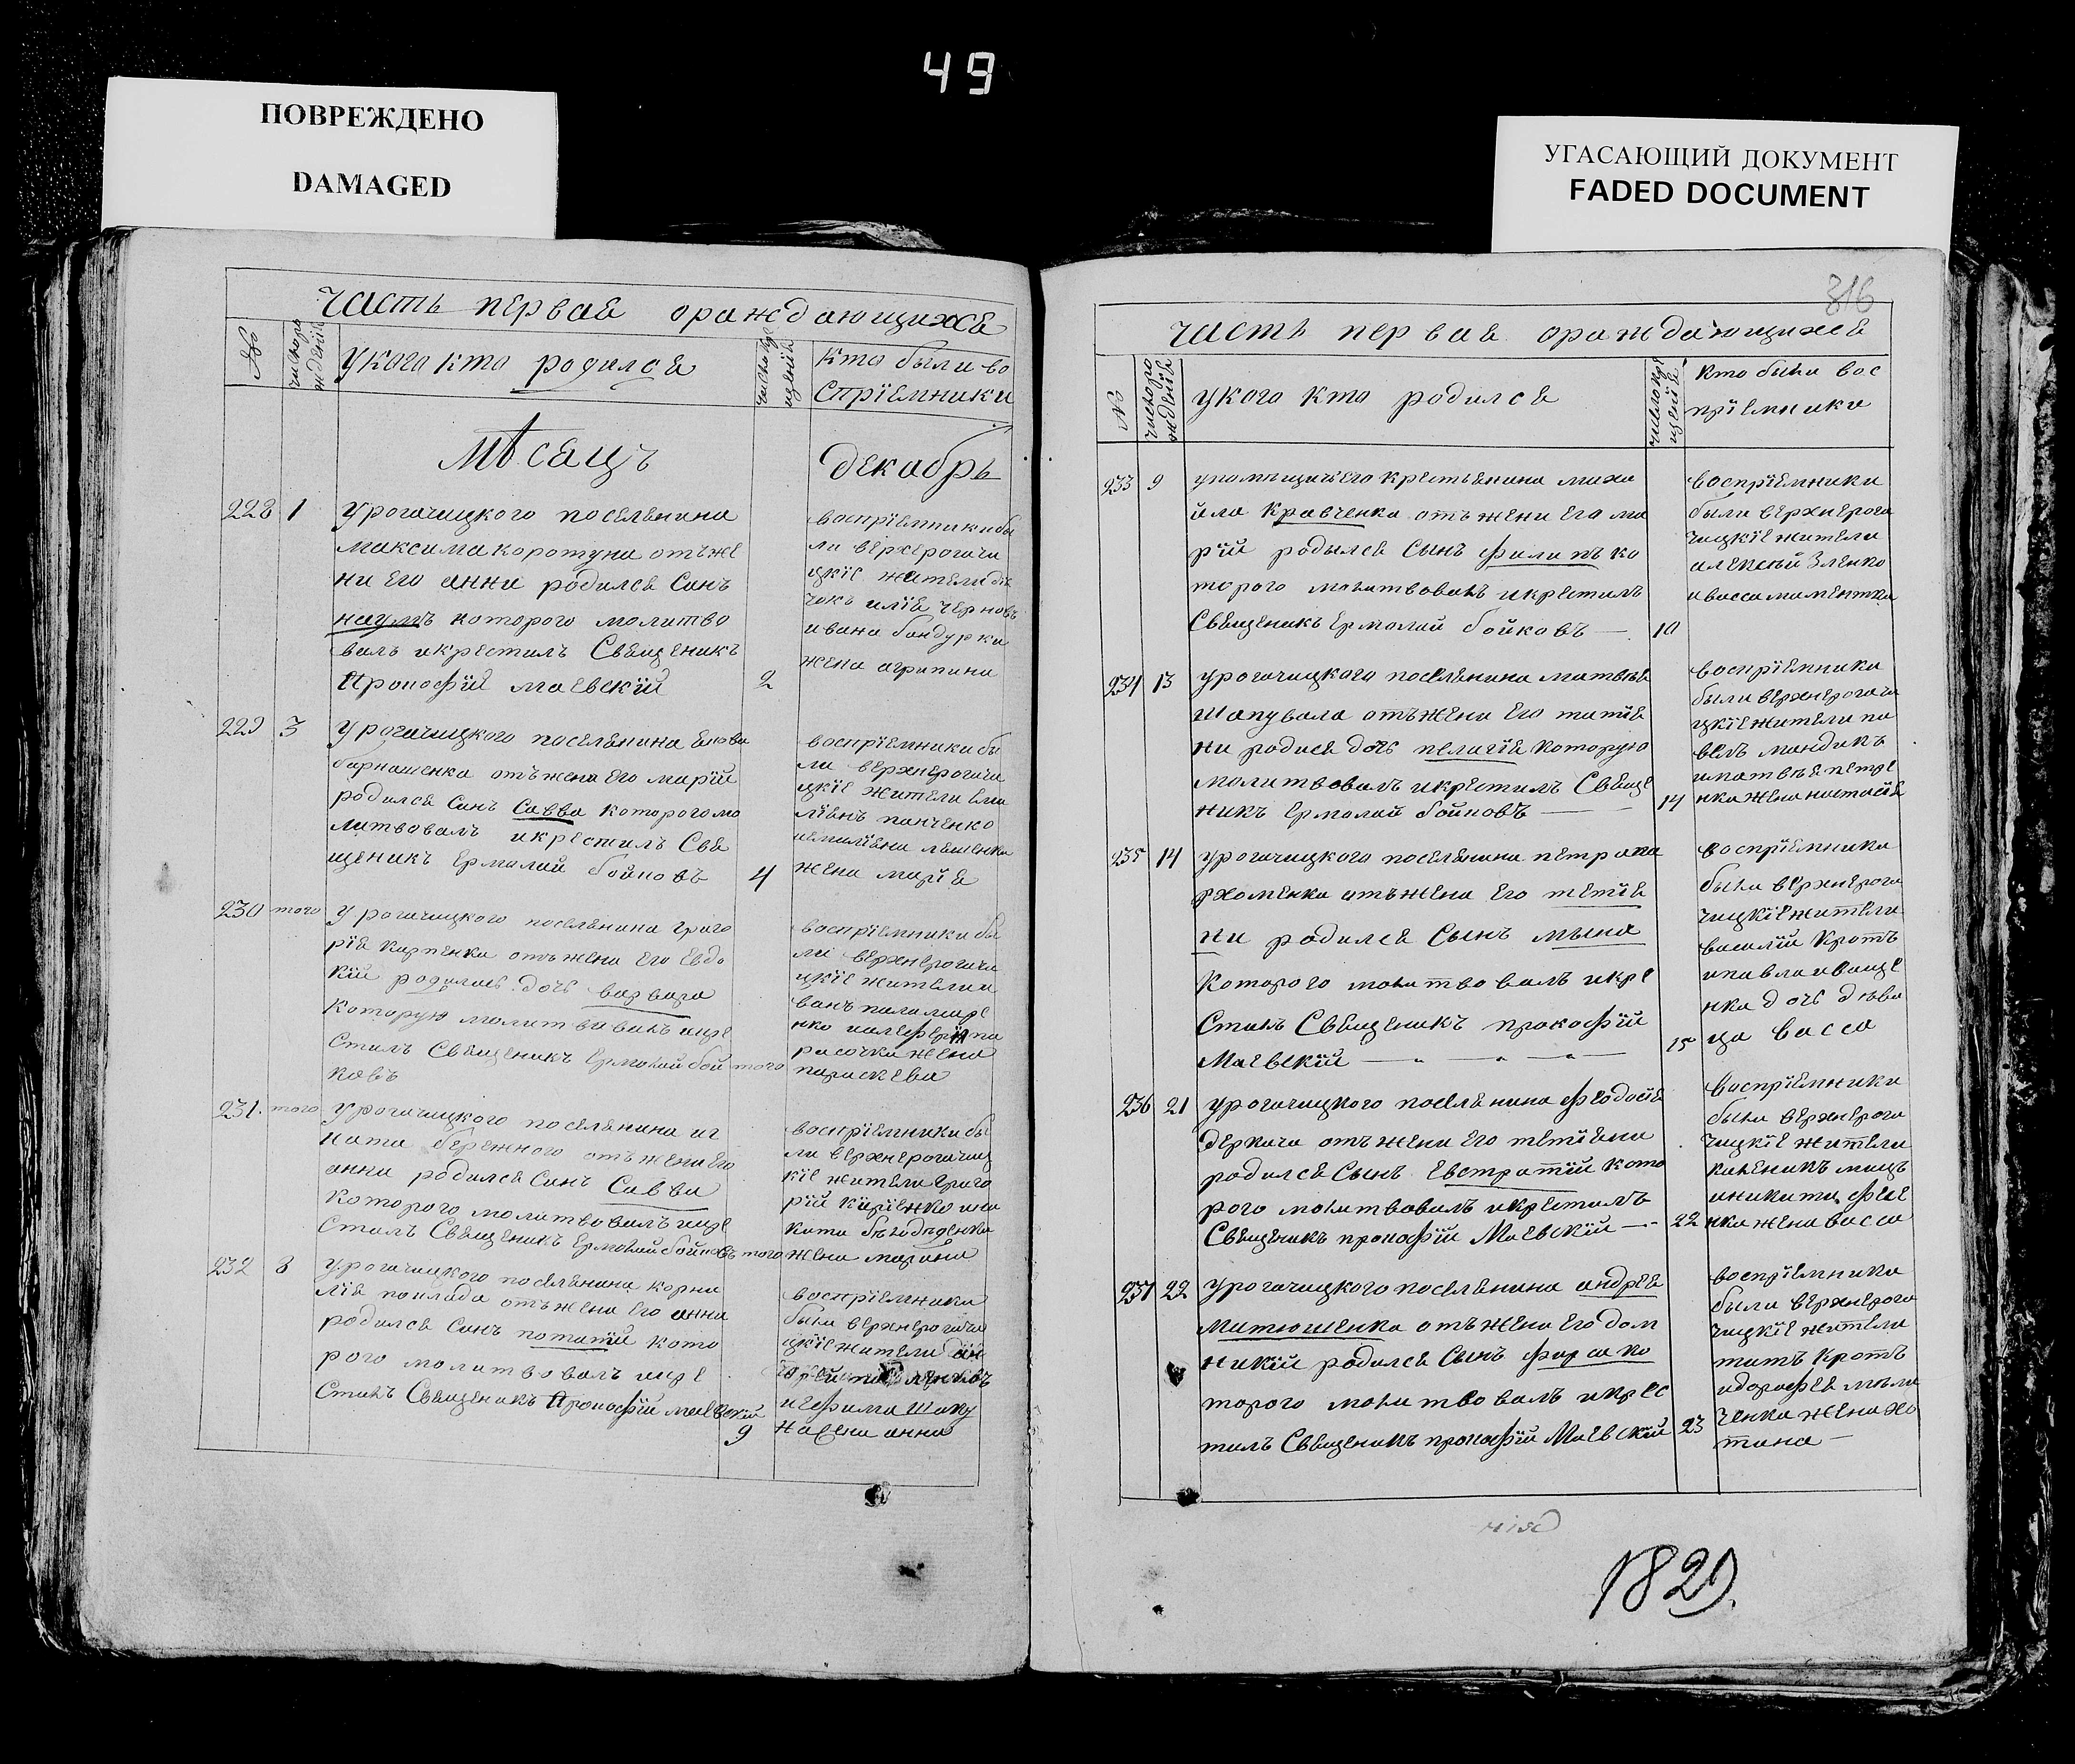 49
ПОВРЕЖДЕНО
DAMAGED
УГАСАЮЩИЙ ДОКУМЕНТ
FADED DOCUMENT
часть первая ораждающихся
№
число ро
ждения
укого кто родился
число кре
щенія
кто были во
спріемники
мѣсяцъ
декабрь
228 1
урогачицкого поселянина
максима коротуна отъже
ни его анни родился Синъ
наумъ которого молитво
валъ икрестилъ Священикъ
Прокофїй маевскїй
2
воспріемники бы
ли верхерогачи
цкіе жители дя
чокъ илія черновъ
ивана бондурки
жена агрипина
229 3
урогачицкого поселянина якова
барнашенка отъжени его марїй
родился Синъ Савва которого мо
литвовалъ икрестилъ Свя
щеникъ ермолай бойковъ
4
воспріемники би
ли верхнерогачи
цкіе жители еми
ліянъ панченко
жена марія
230 того
урогачицкого поселянина григо
рія карпенка отъжени его Евдо
кїи родилась дочь варвара
которую молитвовалъ икре
стилъ Священикъ Ермолай бой
ковъ
того
воспріемники бы
ли верхнерогачи
цкіе жители и
ванъ паламаре
расочки жена
параскева
231. того
урогачицкого поселянина иг
ната бережного отъжени его
анни родился синъ Савва
которого молитвовалъ икре
стилъ Священикъ Ермолай бойковъ
того
воспріемники бы
ли верхнерогачиц
кіе жители григо
рїй кіріенко ини
жена марина
232 8
урогачицкого поселянина корни
лія поклада отъжени его анни
родился Синъ потапїй кото
рого молитвовалъ икре
стилъ Священикъ Прокофїй маевскїй
9
воспріемники
были верхнерогачи
цкіе жители
иефима шапу
жена анна
316
часть первая ораждающихся
№
число ро
жденія
укого кто родился
число кре
щенія
кто были вос
пріемники
233 9
упомѣщичьего крестьянина миха
йла Кравченка отъжени его ма
рїй родылся Сынъ филипъ ко
торого молитвовалъ икрестилъ
Священикъ Ермолай бойковъ —
10
воспріемники
были верхнерога
чицкіе жители
алексѣй Зленко
234 13
урогачицкого поселянина матвѣя
шапувала отъжени его татія
ни родися дочь пелагія которую
молитвовалъ икрестилъ Свяще
никъ ермолай бойковъ —
14
воспріемники
были верхнерогачи
цкіе жители па
велъ мандикъ
иматвѣя петре
нка жена настасія
235 14
урогачицкого поселянина петра па
рхоменка отъжени его тетія
ни родился Сынъ мына
которого молитвовалъ икре
стилъ Священикъ прокофїй
Маевскїй —
15
воспріемники
были верхнерога
чицкіе жители
василїй кротъ
ипавла иваще
нка дочь дѣви
ца васса
236 21
урогачицкого поселянина феодосїя
деркача отъжени его тетїяни
родился Сынъ Евстратїй кото
рого молитвовалъ икрестилъ
Священикъ прокофїй Маевскїй —
22
воспріемники
были верхнерога
чицкіе жители
каленикъ мицъ
иникити фее
нка жена васса
237 22
урогачицкого поселянина андрея
Митюшенка отъжени его дом
никїи родился Сынъ фирс ко
торого молитвовалъ икрес
тилъ Священикъ прокофїй Маевскїй
23
воспріемники
были верхнерога
чицкіе жители
титъ кротъ
ченка жена хо
тина —
1829.